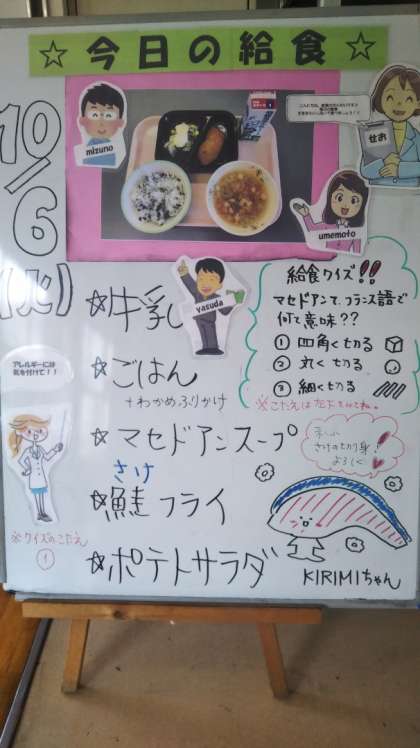 ☆今日の給食☆
10/6
(火)
mizuno
せお
umemoto
yasuda
☆牛乳
☆ごはん
+わかめふりかけ
☆マセドアンスープ
さけ
☆鮭フライ
☆ポテトサラダ
給食クイズ!!
マセドアンて、フランス語で
何て意味??
① 四角く切る
② 丸く切る
③ 細く切る
アレルギーには
気を付けて!!
さけの切り身!
よろしく
※クイズのこたえ
①
KIRIMIちゃん